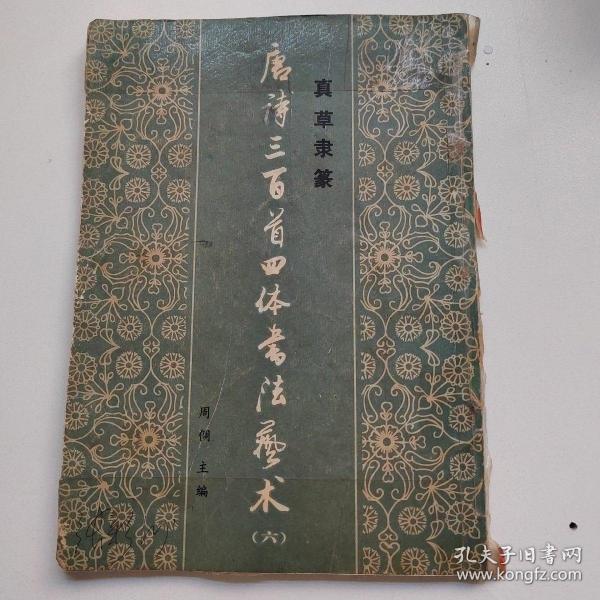 真草隶篆
唐诗三百首四体书法艺术
（六）
周倜 主编
孔夫子旧书网
www.kongfz.com